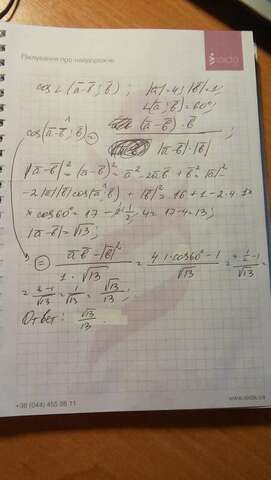 Піклування про найдорожче
isida
cos ∠(a̅-b̅; b̅); |a̅|=4; |b̅|=1
∠(a̅; b̅)=60°;
cos(a̅-b̅; b̅) = (a̅-b̅)·b̅ / |a̅-b̅|·|b̅| ;
|a̅-b̅|² = (a̅-b̅)² = a̅²-2a̅b̅+b̅²=|a̅|²-
-2|a̅||b̅|cos(a̅^b̅)+|b̅|²=16+1-2·4·1×
×cos60°=17-2·1/2·4=17-4=13;
|a̅-b̅|=√13;
= a̅·b̅-|b̅|² / 1·√13 = 4·1·cos60°-1 / √13 = 4·1/2-1 / √13 =
= 2-1/√13 = 1/√13 = √13/13;
Ответ: √13/13.
+38 (044) 455 88 11
www.isida.ua